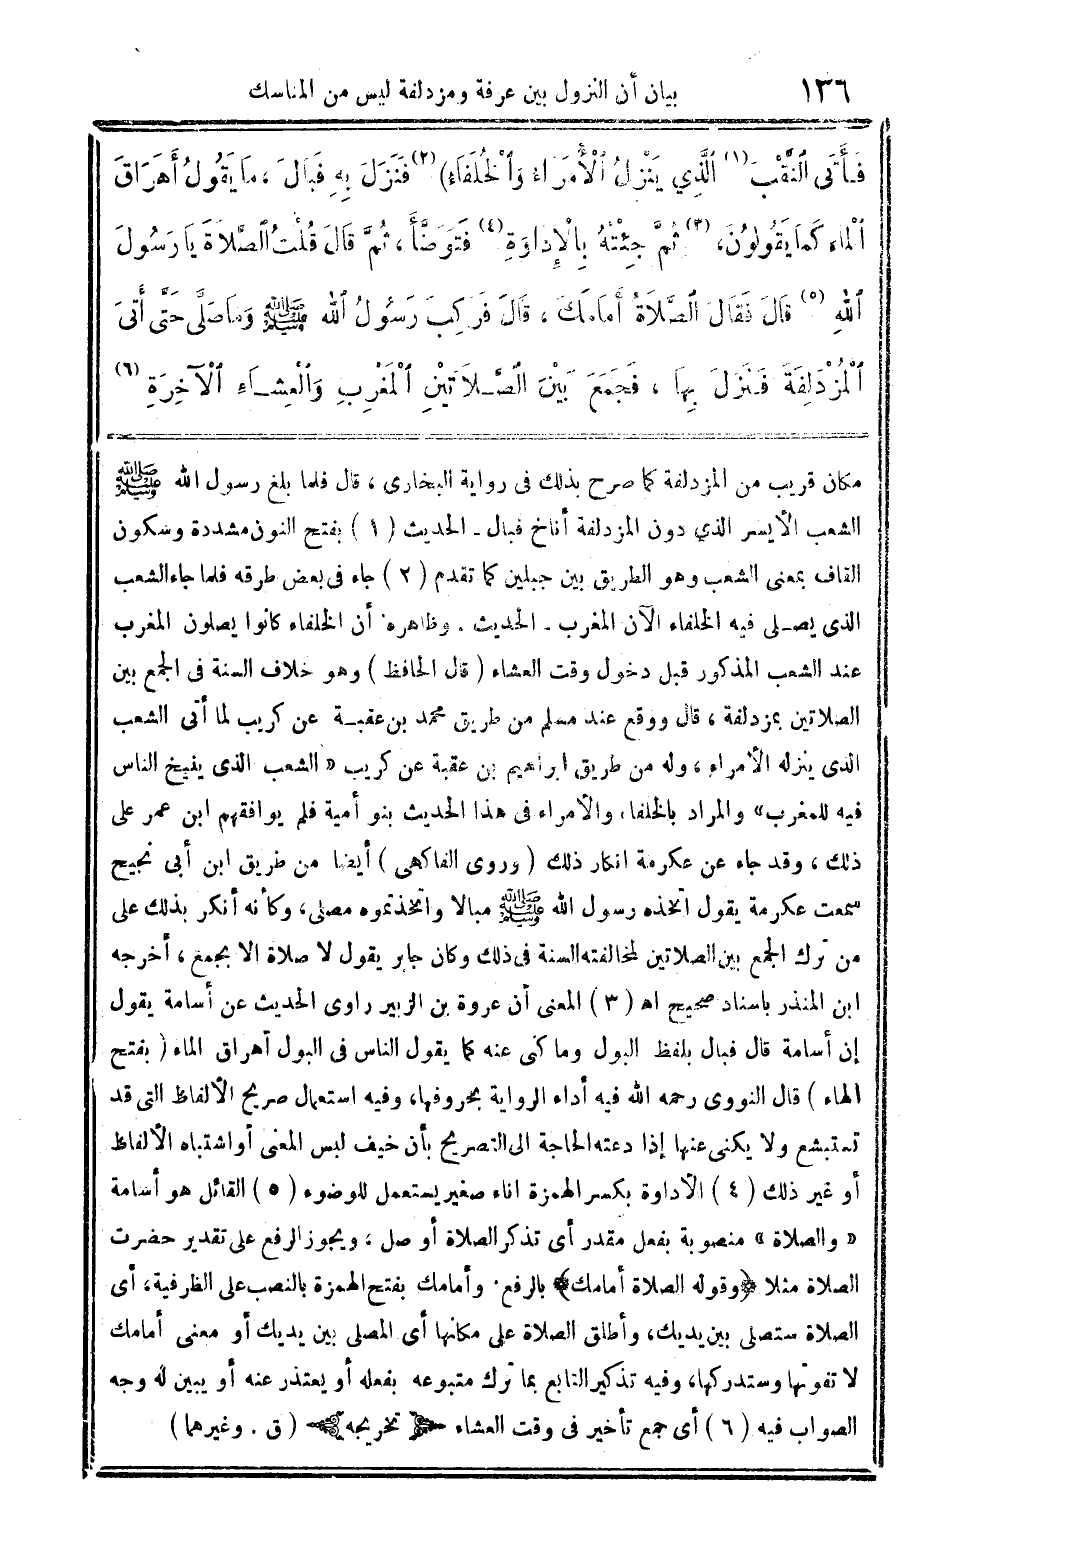 ١٣٦ بيان أن النزول بين عرفة ومزدلفة ليس من المناسك
فَأَتَى ٱلنَّقْبَ (١) ٱلَّذِي يَنْزِلُ ٱلْأُمَرَاءُ وَٱلْخُلَفَاءِ) (٢) فَنَزَلَ بِهِ فَبَالَ ، مَا يَقُولُ أَهَرَاقَ
ٱلْمَاءَ كَمَا يَقُولُونَ، (٣) ثُمَّ جِئْتُهُ بِالْإِدَاوَةِ (٤) فَتَوَضَّأَ ، ثُمَّ قَالَ قُلْتُ ٱلصَّلَاةَ يَا رَسُولَ
ٱللهِ (٥) قَالَ فَقَالَ ٱلصَّلَاةُ أَمَامَكَ ، قَالَ فَرَكِبَ رَسُولُ ٱللهِ ﷺ وَمَا صَلَّى حَتَّى أَتَى
ٱلْمُزْدَلِفَةَ فَنَزَلَ بِهَا ، فَجَمَعَ بَيْنَ ٱلصَّلَاتَيْنِ ٱلْمَغْرِبِ وَٱلْعِشَاءِ ٱلْآخِرَةِ (٦)
مكان قريب من المزدلفة كما صرح بذلك فى رواية البخارى ، قال فلما بلغ رسول الله ﷺ
الشعب الأيسر الذي دون المزدلفة أناخ فبال ـ الحديث ( ١ ) بفتح النون مشددة وسكون
القاف بمعنى الشعب وهو الطريق بين جبلين كما تقدم ( ٢ ) جاء فى بعض طرقه فلما جاء الشعب
الذى يصلى فيه الخلفاء الآن المغرب ـ الحديث . وظاهره أن الخلفاء كانوا يصلون المغرب
عند الشعب المذكور قبل دخول وقت العشاء ( قال الحافظ ) وهو خلاف السنة فى الجمع بين
الصلاتين بمزدلفة ، قال ووقع عند مسلم من طريق محمد بن عقبة عن كريب لما أتى الشعب
الذى ينزله الأمراء ، وله من طريق ابراهيم بن عقبة عن كريب « الشعب الذى ينيخ الناس
فيه للمغرب» والمراد بالخلفاء والأمراء فى هذا الحديث بنو أمية فلم يوافقهم ابن عمر على
ذلك ، وقد جاء عن عكرمة انكار ذلك ( وروى الفاكهى ) أيضا من طريق ابن أبى نجيح
سمعت عكرمة يقول اتخذه رسول الله ﷺ مبالا واتخذتموه مصلى، وكأنه أنكر بذلك على
من ترك الجمع بين الصلاتين لمخالفته السنة فى ذلك وكان جابر يقول لا صلاة الا بجمع ، أخرجه
ابن المنذر باسناد صحيح اه ( ٣ ) المعنى أن عروة بن الزبير راوى الحديث عن أسامة يقول
إن أسامة قال فبال بلفظ البول وما كنى عنه كما يقول الناس فى البول أهراق الماء ( بفتح
الهاء ) قال النووى رحمه الله فيه أداء الرواية بحروفها، وفيه استعمال صريح الألفاظ التى قد
تستبشع ولا يكنى عنها إذا دعته الحاجة الى التصريح بأن خيف لبس المعنى أو اشتباه الألفاظ
أو غير ذلك ( ٤ ) الأداوة بكسر الهمزة اناء صغير يستعمل للوضوء ( ٥ ) القائل هو أسامة
« والصلاة » منصوبة بفعل مقدر أى تذكر الصلاة أو صل ، ويجوز الرفع على تقدير حضرت
الصلاة مثلا ﴿وقوله الصلاة أمامك﴾ بالرفع وأمامك بفتح الهمزة بالنصب على الظرفية، أى
الصلاة ستصلى بين يديك، وأطلق الصلاة على مكانها أى المصلى بين يديك أو معنى أمامك
لا تفوتها وستدركها، وفيه تذكير التابع بما ترك متبوعه بفعله أو يعتذر عنه أو يبين له وجه
الصواب فيه ( ٦ ) أى جمع تأخير فى وقت العشاء تخريجه ( ق . وغيرهما )